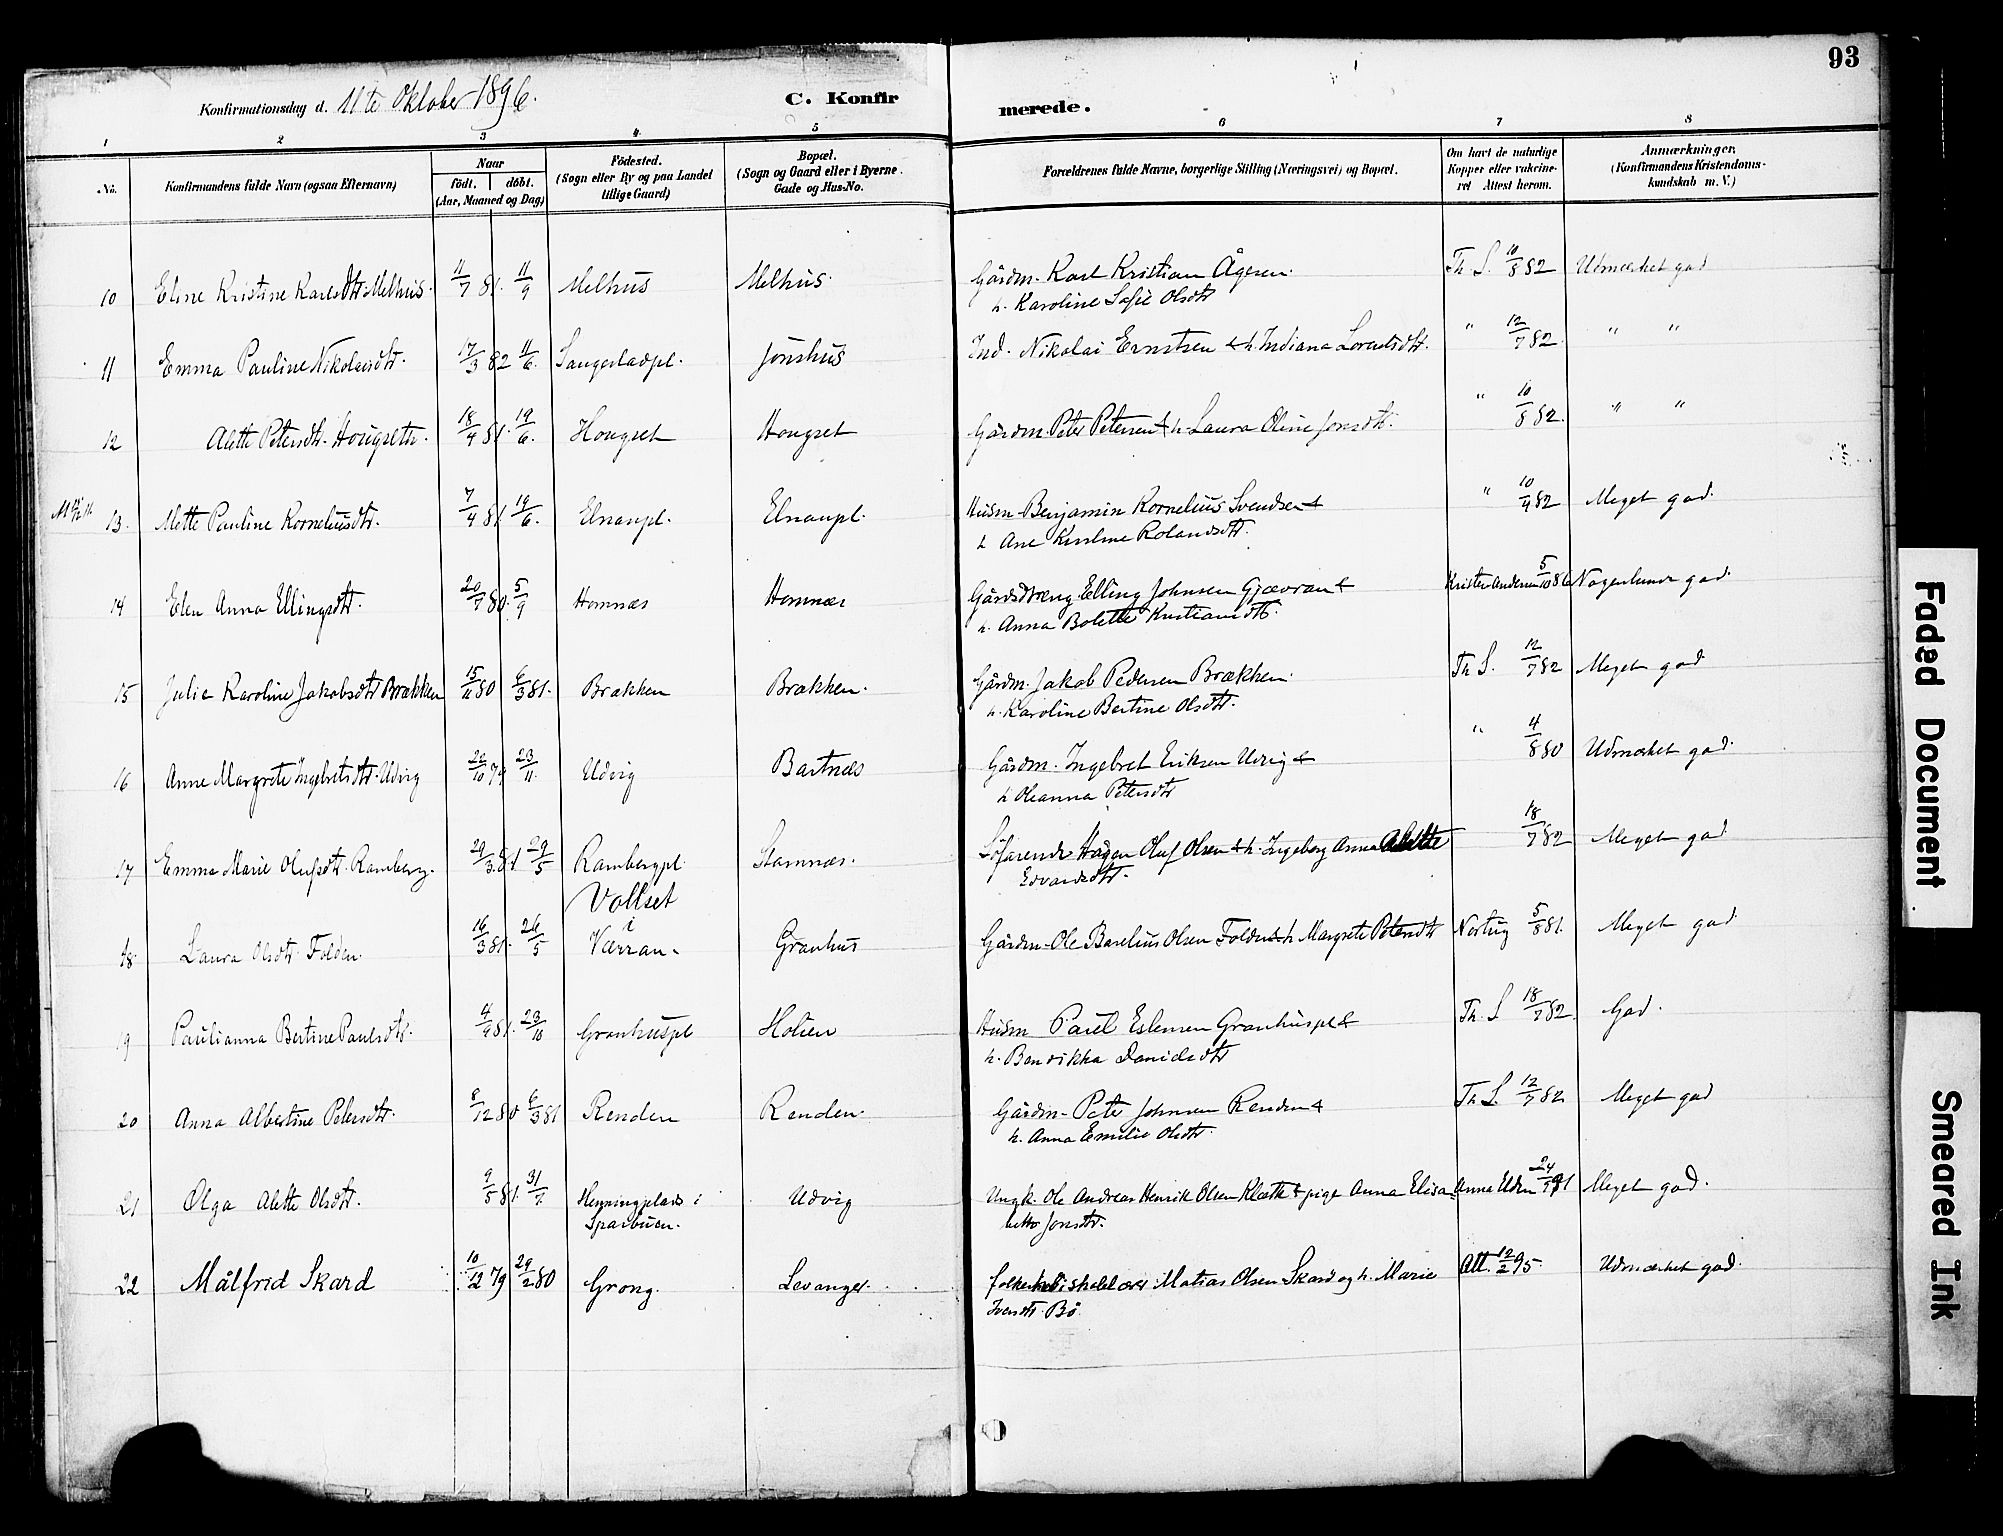 93
Konfirmationsdag d. 11te Oktober 1896.
C. Konfirmerede.
1 2 3 4 5 6 7 8
No. Konfirmandens fulde Navn (ogsaa Efternavn) Naar födt. döbt. (Aar, Maaned og Dag) Födested. (Sogn eller By og paa Landet tillige Gaard) Bopæl. (Sogn og Gaard eller i Byerne Gade og Hus-No. Forældrenes fulde Navne, borgerlige Stilling (Næringsvei) og Bopæl. Om havt de naturlige Kopper eller vakcineret Attest herom. Anmærkninger. (Konfirmandens Kristendomskundskab m. V.)
10 Eline Kristine Karlsdtr Melhus. 11/7 81. 11/9 Melhus Melhus. Gårdm. Karl Kristian Ågesen. Th. S. 10/8 82 Udmærket god
h. Karoline Sofie Olsdtr
11 Emma Pauline Nikolaisdtr. 17/3 82 11/6. Jönshus Ind. Nikolai Ernstsen & h. Indiana Lorentsdtr. " 12/7 82. " "
12 Alette Petersdtr. Hougseth. 18/4 81. 19/6. Hougset Hougset Gårdm. Peter Petersen & h. Laura Oline Jonsdtr. " 10/8 82. " "
13. Mette Pauline Korneliusdtr. 7/4 81 19/6. Elnanpl. Elnanpl. Husm. Benjamin Kornelius Svendsen & " 10/9 82 Meget god.
h. Ane Kirstine Rolandsdtr.
14 Elen Anna Ellingsdtr. 20/7 80. 5/9 Homnæs Homnæs Elling Johnsen Gjævran & 5/10 86 Nogenlunde god.
h. Anna Bolette Kristiansdtr.
15 Julie Karoline Jakobsdtr Brækken 15/11 80 6/3 81. Brækken Brækken. Gårdm. Jakob Pedersen Brækken. Th S. 12/7 82 Meget god
h. Karoline Bertine Olsdtr.
16 Anne Margrete Ingebretsdtr. Udvig 26/10 79 23/11. Udvig Bartnæs Gårdm. Ingebret Eriksen Udvig & " 4/8 80 Udmærket god.
h Oleanna Petersdtr
17 Emma Marie Olufsdtr. Ramberg. 29/3 81 29/5 Rambergpl Stamnæs. Söfarende Hagen Oluf Olsen & h. Ingeborg Anna Alette 18/7 82 Meget god
Edvardsdtr.
18 Laura Olsdtr. Folden. 16/3 81. 26/5 Vollset i Værran. Granhus Gårdm. Ole Barelius Olsen Folden & h Margrete Petersdtr Nertug 5/8 81. Meget god
19 Paulianna Bertine Paulsdtr. 4/9 81. 23/10 Granhuspl Holien Husm Paul Eslemen Granhuspl & Th. S 18/7 82. God.
h. Bendikka Danielsdtr
20 Anna Albertine Petersdtr. 8/12 80 6/3 81 Renden Renden. Gårdm. Peter Johnsen Renden & Th. S. 12/7 82 Meget god
h. Anna Emilie Olsdtr.
21 Olga Alette Olsdtr. 9/5 81. 31/7 Henningplads i Sparbuen. Udvig Ungk. Ole Andreas Henrik Olsen Klæth & pige Anna Elisabetha Jonsdtr. Anna Uden 24/9 81 Meget god.
22 Målfrid Skard 10/12 79 29/2 80 Grong. Levanger. Matias Olsen Skard og h. Marie Att. 12/2 95. Udmærket god.
Iversdtr. Bö
Faded Document
Smeared Ink